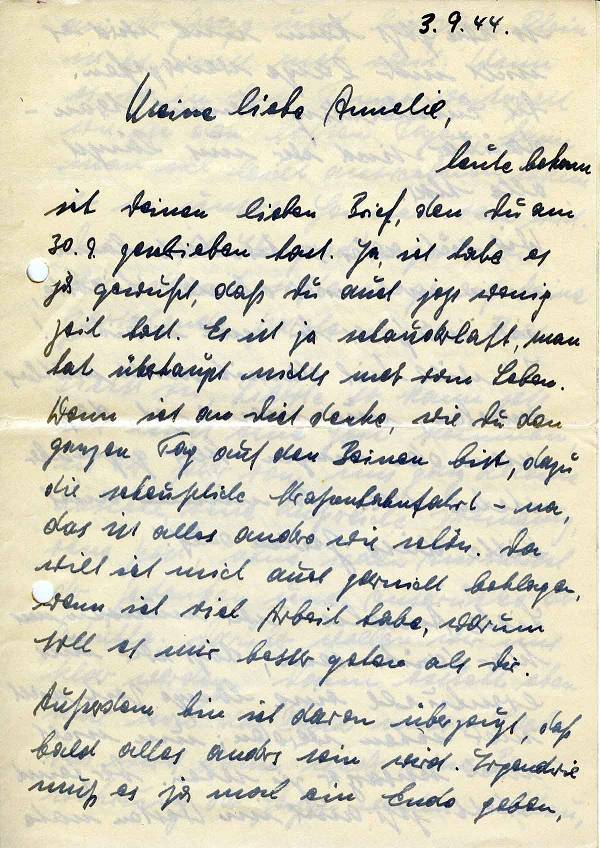 3.9.44.
Meine liebe Annelie,
heute bekam
ich deinen lieben Brief, den du am
30.8. geschrieben hast. Ja, ich habe es
ja gewußt, daß du auch jetzt wenig
Zeit hast. Es ist ja schauderhaft, man
hat überhaupt nichts mehr vom Leben.
Wenn ich an dich denke, wie du den
ganzen Tag auf den Beinen bist, dazu
die scheußliche Straßenbahnfahrt – na,
das ist alles andre wie schön. Da
will ich mich auch garnicht beklagen,
wenn ich viel Arbeit habe, warum
soll es mir besser gehen als dir.
Außerdem bin ich davon überzeugt, daß
bald alles anders sein wird. Irgendwie
muß es ja mal ein Ende geben,